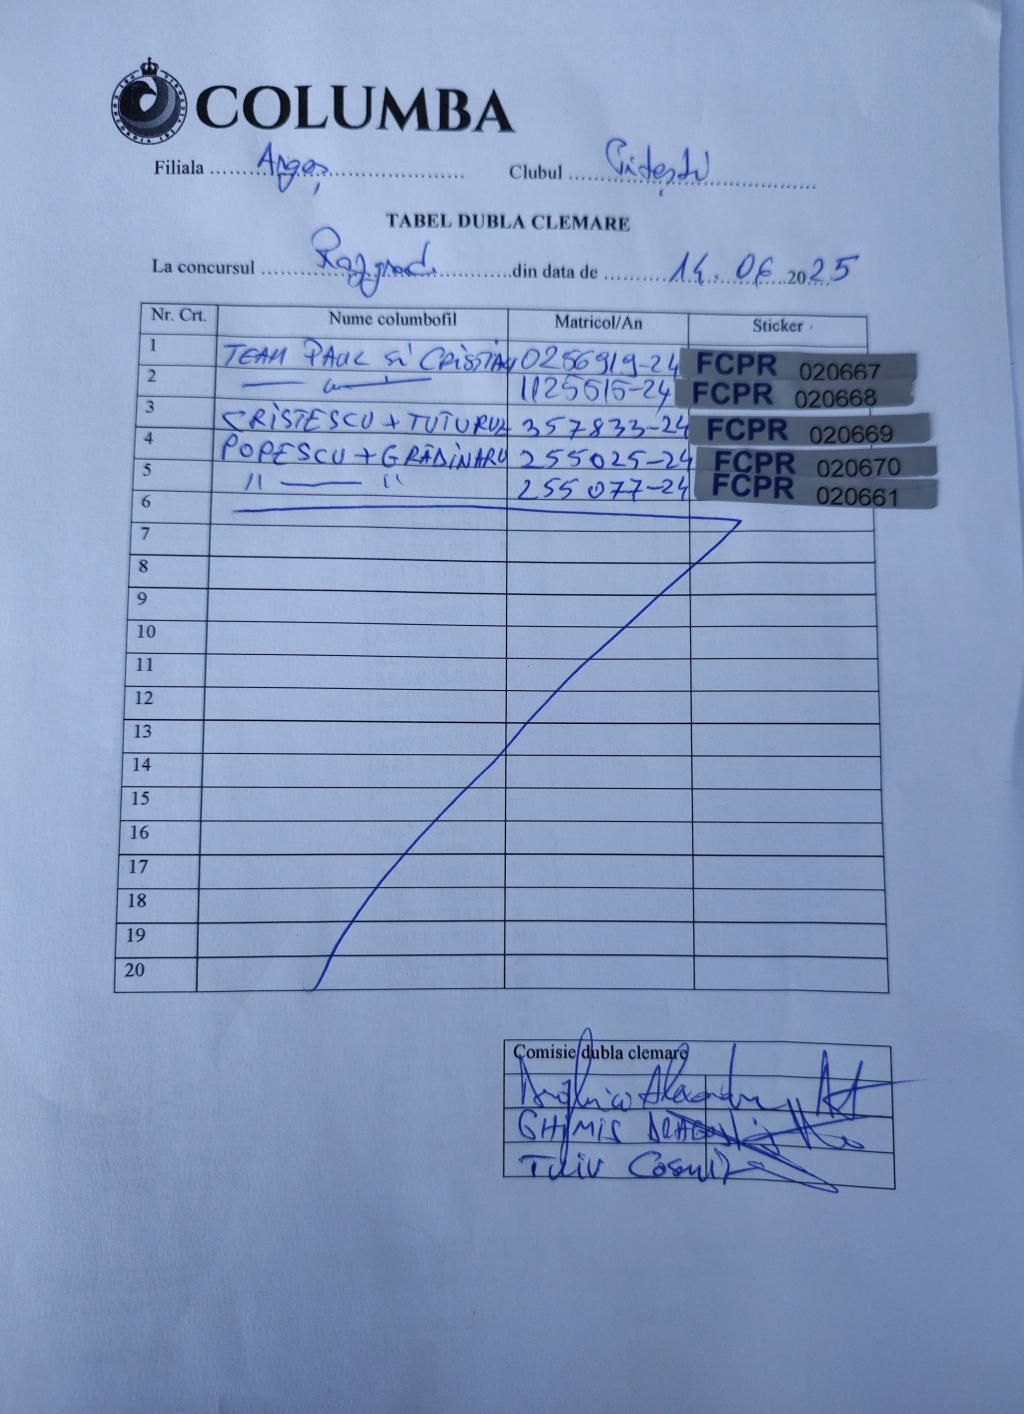 COLUMBA
Filiala ........ Argeș ........ Clubul ........ Pitești ........
TABEL DUBLA CLEMARE
La concursul ........ Razgrad ........ din data de ........ 14.06.2025
Nr. Crt. Nume columbofil Matricol/An Sticker
1 TEAM PAUL si CRISTIAN 0256919-24 FCPR 020667
2 — 〃 — 1125515-24 FCPR 020668
3 CRISTESCU + TUTURUZ 357833-24 FCPR 020669
4 POPESCU + GRĂDINARU 255025-24 FCPR 020670
5 〃 — 〃 255077-24 FCPR 020661
6
7
8
9
10
11
12
13
14
15
16
17
18
19
20
Comisie dubla clemare
Alexandru
GHIMIS DRAGOS